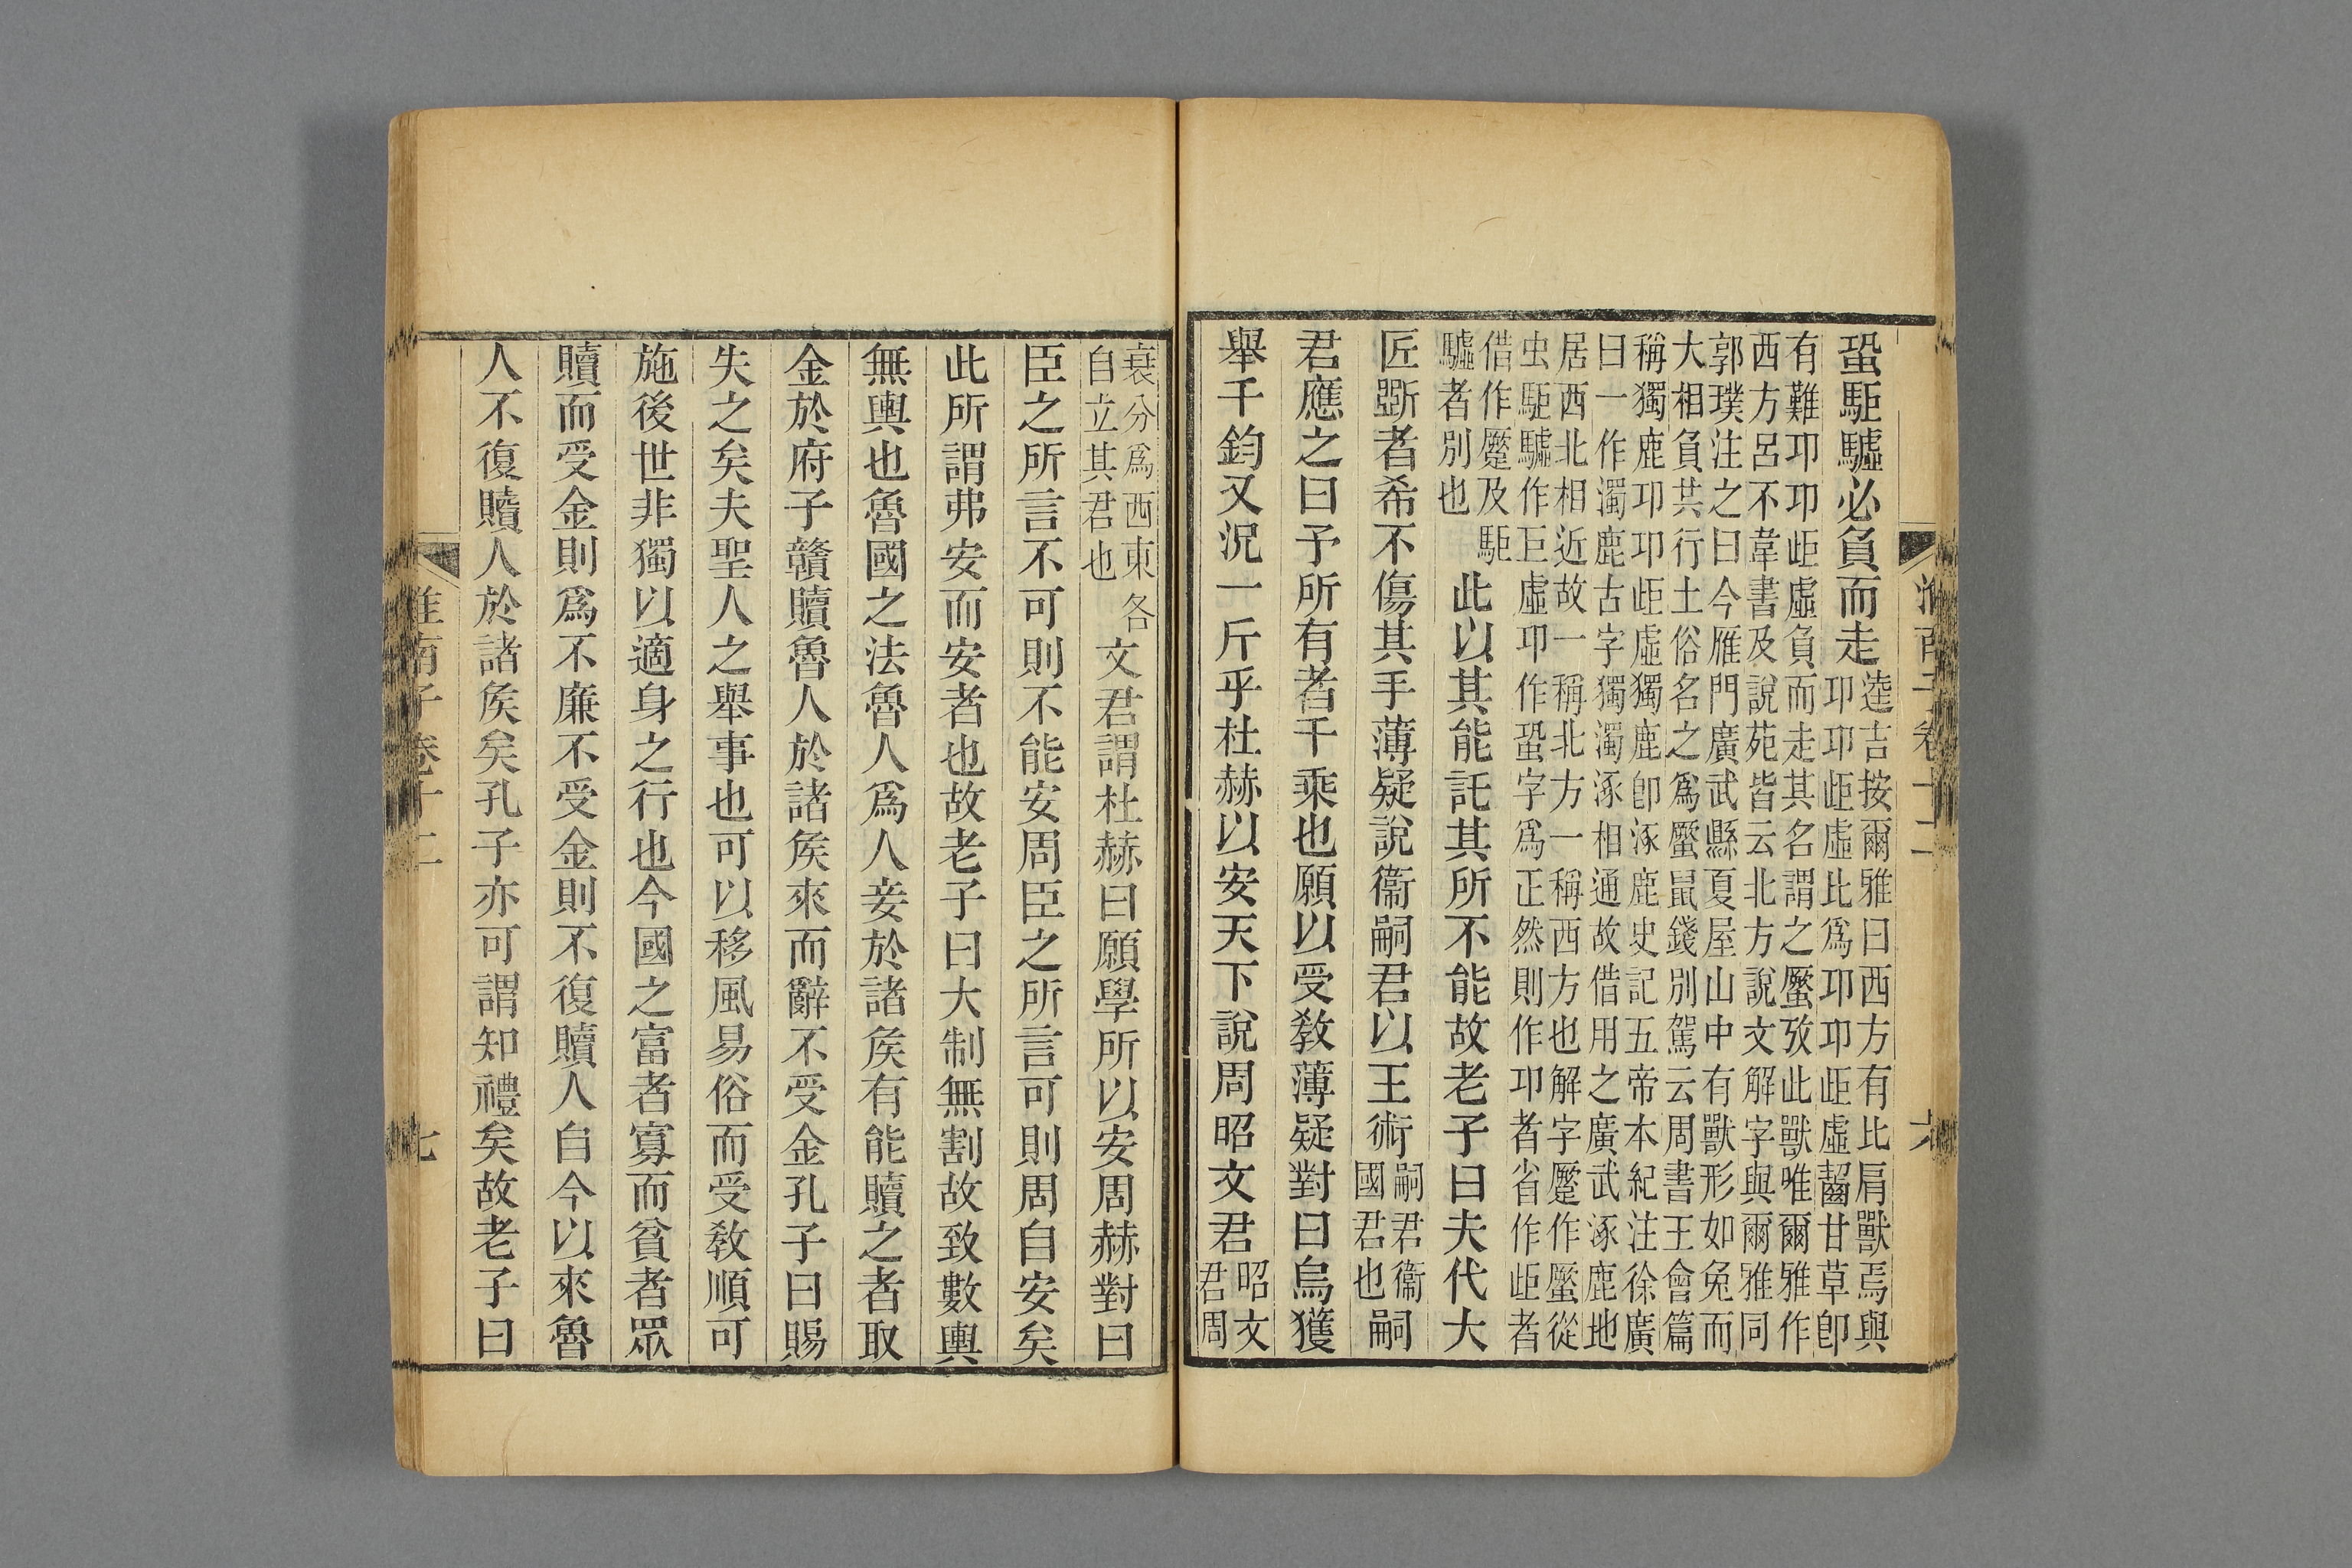 蛩駏驉必負而走逵吉按爾雅曰西方有比肩獸焉與
卭卭岠虛比爲卭卭岠虛齧甘草卽
有難卭卭岠虛負而走其名謂之蟨攷此獸唯爾雅作
西方呂不韋書及說苑皆云北方說文解字與爾雅同
郭璞注之曰今雁門廣武縣夏屋山中有獸形如兔而
大相負共行土俗名之爲蟨鼠錢別駕云周書王會篇
稱獨鹿卭卭岠虛獨鹿卽涿鹿史記五帝本紀注徐廣
曰一作濁鹿古字獨濁涿相通故借用之廣武涿鹿地
居西北相近故一稱北方一稱西方也解字蹷作蟨從
虫駏驉作巨虛卭作蛩字爲正然則作卭者省作岠者
借作蹷及駏
驉者別也此以其能託其所不能故老子曰夫代大
匠斲者希不傷其手薄疑說衞嗣君以王術嗣君衞嗣
國君也
君應之曰予所有者千乘也願以受敎薄疑對曰烏獲
舉千鈞又況一斤乎杜赫以安天下說周昭文君昭文
君周
衰分爲西東各
自立其君也文君謂杜赫曰願學所以安周赫對曰
臣之所言不可則不能安周臣之所言可則周自安矣
此所謂弗安而安者也故老子曰大制無割故致數輿
無輿也魯國之法魯人爲人妾於諸矦有能贖之者取
金於府子贛贖魯人於諸矦來而辭不受金孔子曰賜
失之矣夫聖人之舉事也可以移風易俗而受敎順可
施後世非獨以適身之行也今國之富者寡而貧者眾
贖而受金則爲不廉不受金則不復贖人自今以來魯
人不復贖人於諸矦矣孔子亦可謂知禮矣故老子曰
淮南子卷十二
七